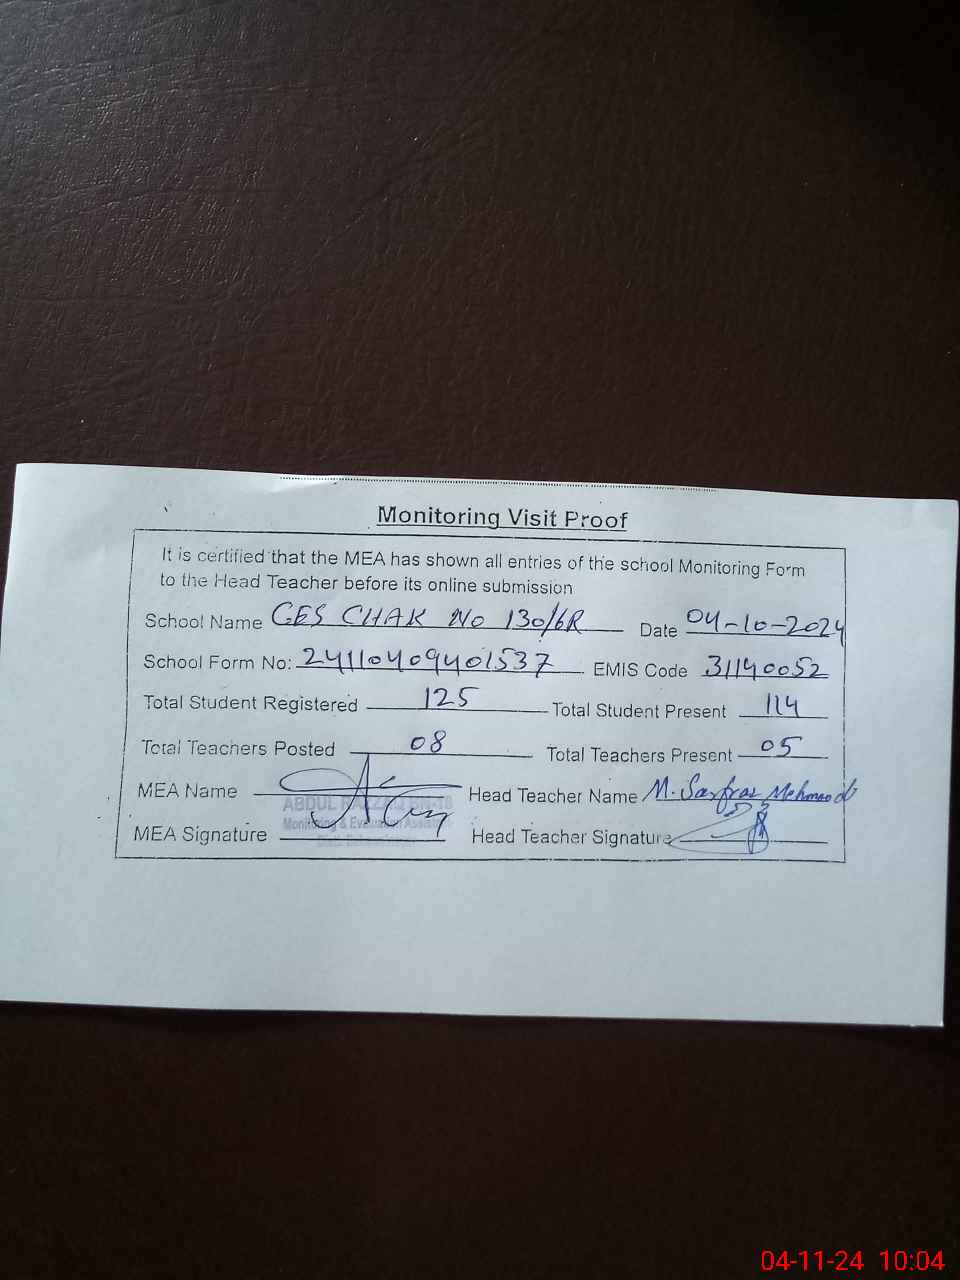 Monitoring Visit Proof
It is certified that the MEA has shown all entries of the school Monitoring Form
to the Head Teacher before its online submission
School Name GES CHAK No 130/6R Date 04-10-2024
School Form No: 2411040940 1537 EMIS Code 31140052
Total Student Registered 125 Total Student Present 114
Total Teachers Posted 08 Total Teachers Present 05
MEA Name Head Teacher Name M. Sarfraz Mehmood
ABDUL RAZZAQ
Monitoring & Evaluation Assistant
MEA Signature Head Teacher Signature
04-11-24 10:04